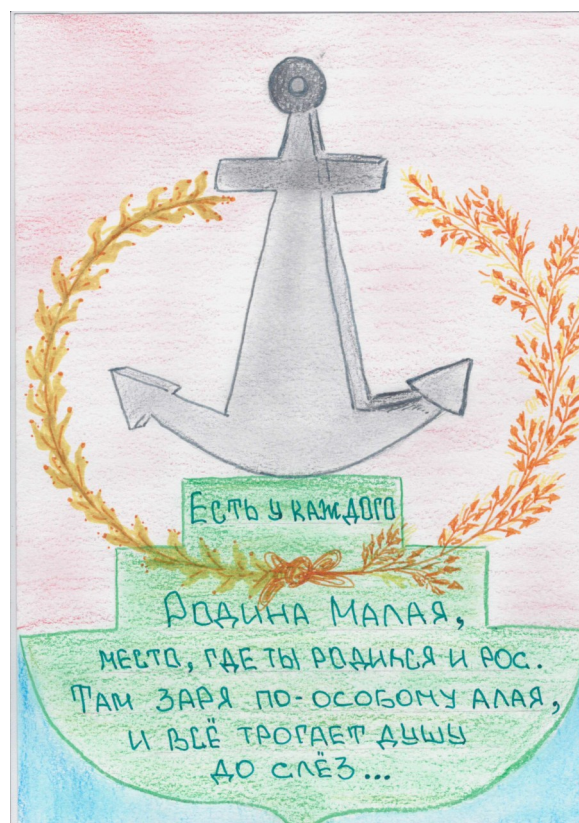 Есть у каждого
Родина Малая,
место, где ты родился и рос.
Там заря по-особому алая,
и всё трогает душу
до слёз...